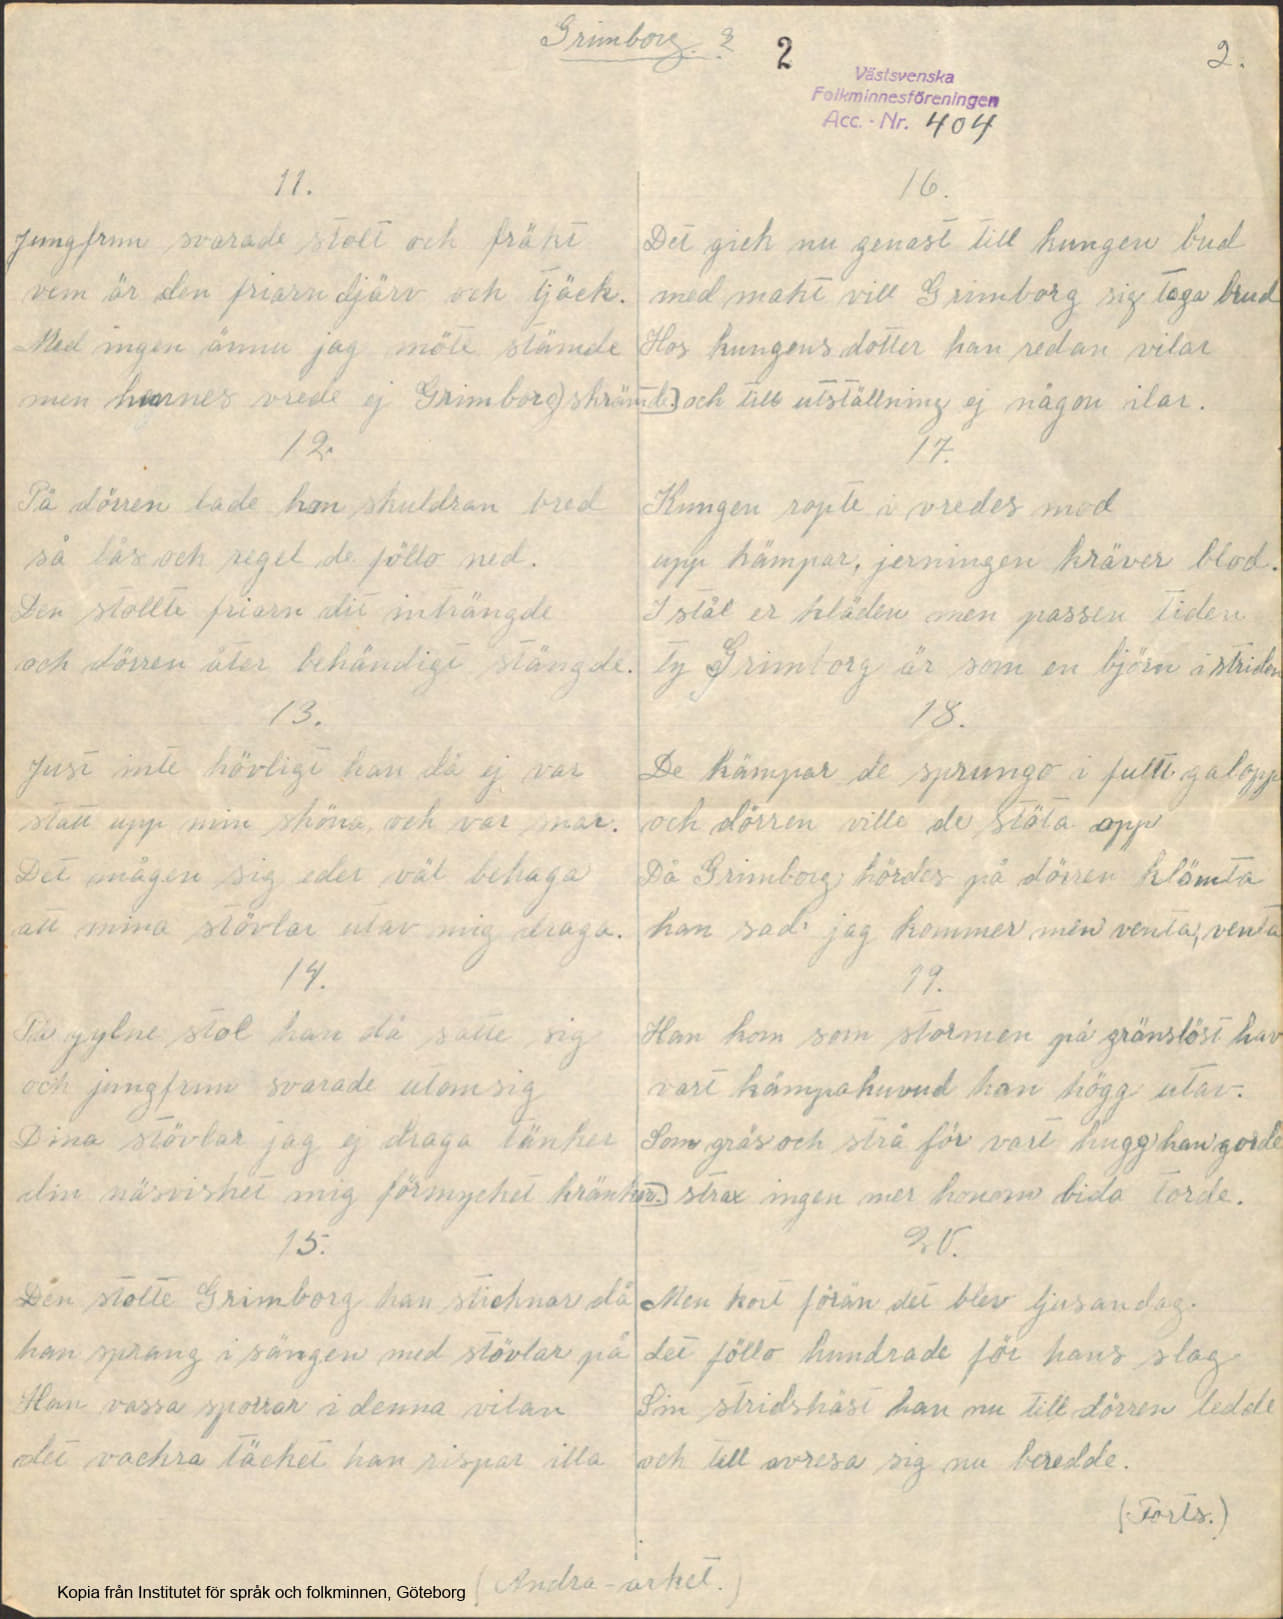 Grimborg. 2
2
2.
Västsvenska
Folkminnesföreningen
Acc. - Nr. 404
11.
Jungfrun svarade stolt och fräkt
vem är den friarn djärv och tjäck.
Med ingen ännu jag möte stämde
men hennes vrede ej Grimborg) skrämde.)
12.
På dörren lade han skuldran bred
så lås och regel de föllo ned.
Den stollte friarn dit inträngde
och dörren åter behändigt stängde.
13.
Just inte hövligt han då ej var
statt upp min sköna, och var snar.
Det mågen sig eder väl behaga
att mina stövlar utav mig draga.
14.
På gylne stol han då satte sig
och jungfrun svarade utom sig
Dina stövlar jag ej draga tänker
din näsvishet mig förmycket kränker.)
15.
Den stolte Grimborg han sticknar då
han sprang i sängen med stövlar på
Han vassa sporrar i denna vilan
det vackra täcket han rispar illa
16.
Det gick nu genast till kungen bud
med makt vill Grimborg sig taga brud
Hos kungens dotter han redan vilar
och till utställning ej någon ilar.
17.
Kungen ropte i vredes mod
upp kämpar, jerningen kräver blod.
I stål er kläden men passen tiden
ty Grimborg är som en björn i striden
18.
De kämpar de sprungo i fullt galopp
och dörren ville de stöta opp
Då Grimborg hördes på dörren klämta
han sad' jag kommer men venta, venta
19.
Han kom som stormen på gränslöst hav
vart kämpahuvud han högg utav.
Som gräs och strå för vart hugg han gorde
strax ingen mer honom bida torde.
20.
Men kort förän det blev ljusan dag.
det föllo hundrade för hans slag
Sin stridshäst han nu till dörren ledde
och till avresa sig nu beredde.
(Forts.)
(Andra-arket.)
Kopia från Institutet för språk och folkminnen, Göteborg